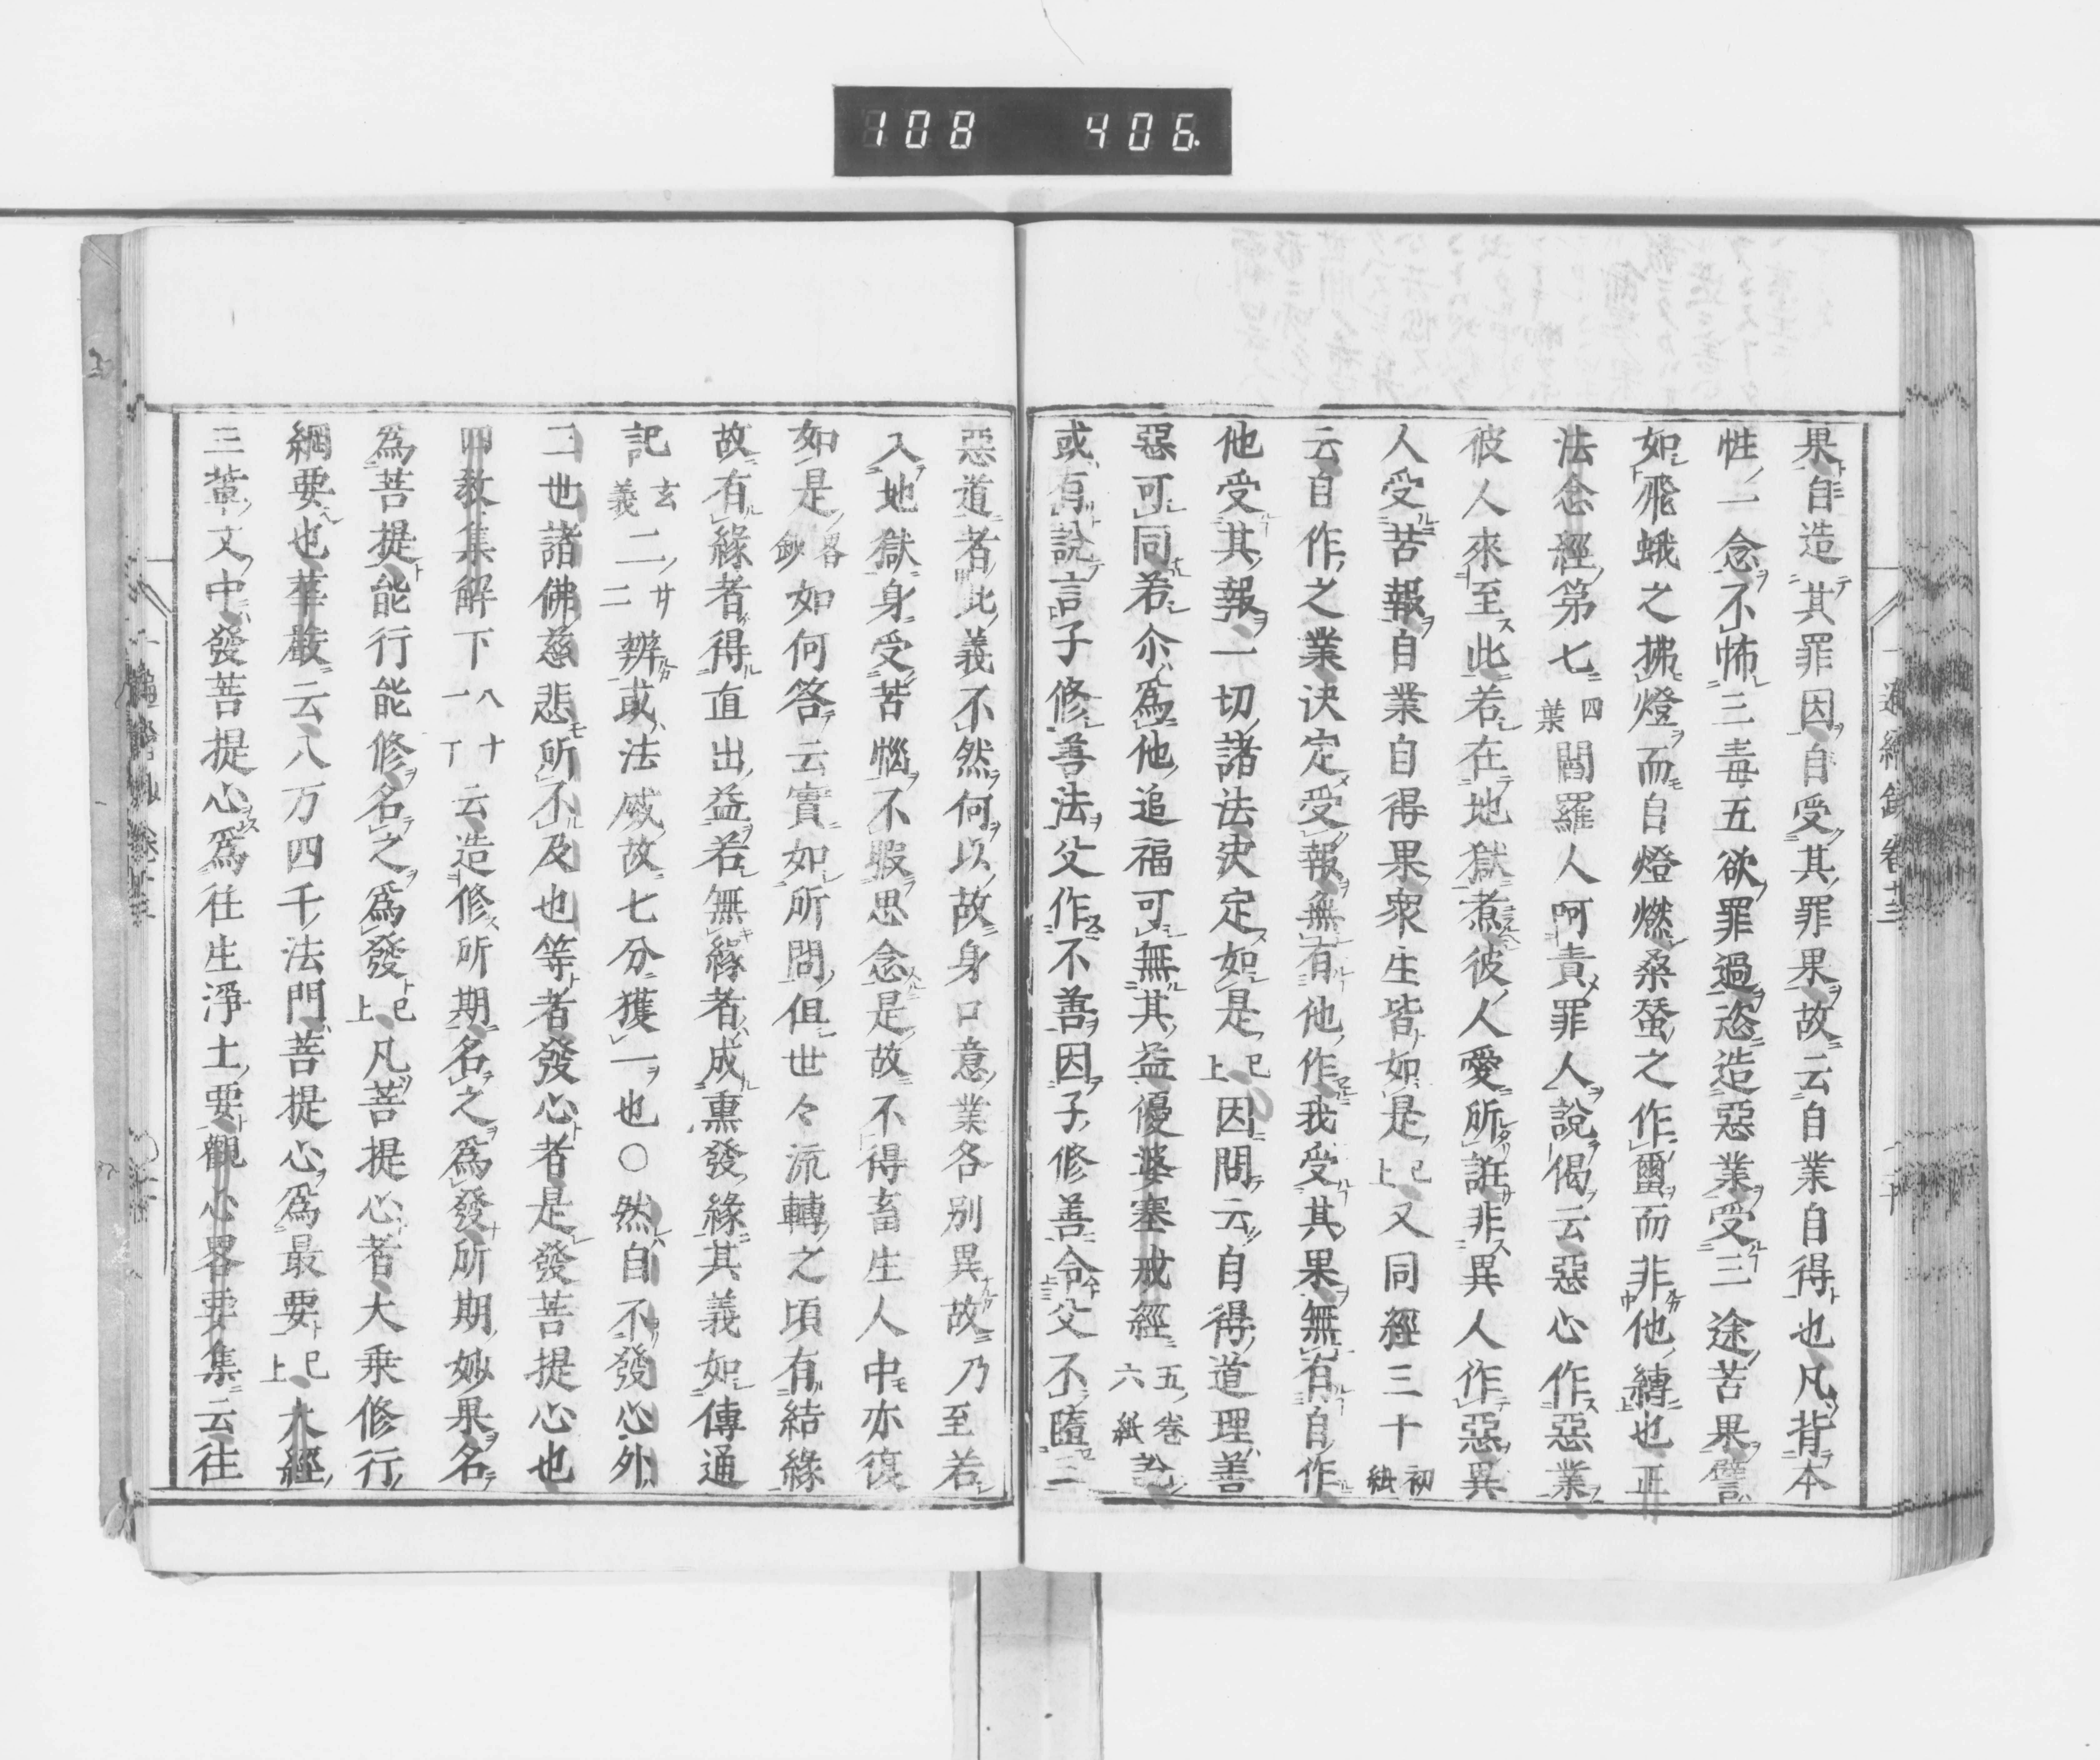 108 406
果自造其罪因自受其罪果故云自業自得也凡背本
性一念不怖三毒五欲罪過恣造惡業受三途苦果譬
如飛蛾之拂燈而自燈燃桑蚕之作璽而非他縛也正
法念經第七四葉閻羅人呵責罪人說偈云惡心作惡業
彼人來至此若在地獄煮彼人愛所誑非異人作惡異
人受苦報自業自得果衆生皆如是已上又同經三十初紙
云自作之業決定受報無有他作我受其果無有自作
他受其報一切諸法決定如是已上因問云自得道理善
惡可同若尒爲他追福可無其益優婆塞戒經五卷六紙說
或有說言子修善法父作不善因子修善令父不墮三
惡道者此義不然何以故身口意業各别異故乃至若
入地獄身受苦惱不暇思念是故不得畜生人中亦復
如是畧鈔如何答云實如所問但世々流轉之頃有結緣
故有緣者得直出益若無緣者成熏發緣其義如傳通
記玄義二廿二辨或法威故七分獲一也○然自不發心外
二世諸佛慈悲所不及也等者發心者是發菩提心也
四教集解下八十一丁云造修所期名之爲發所期妙果名
爲菩提能行能修名之爲發已上凡菩提心者大乘修行
綱要也華嚴云八万四千法門菩提心爲最要已上大經
三輩文中發菩提心爲往生淨土要觀心畧要集云往